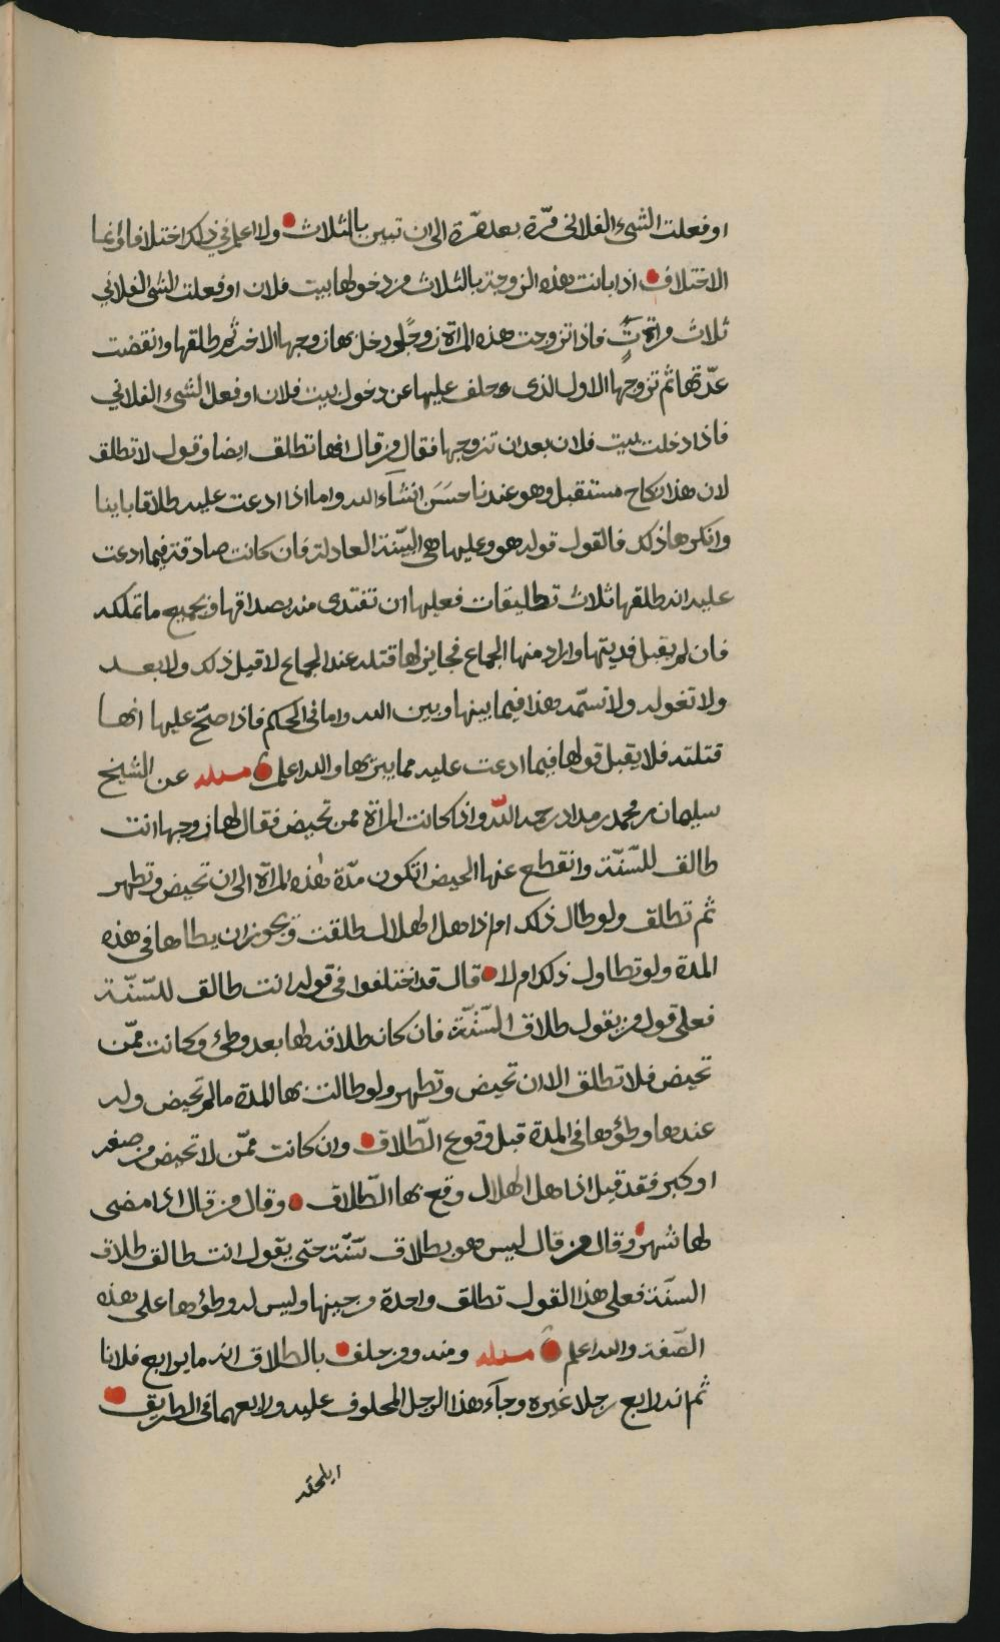 او فعلت الشيء الفلاني مرّة بعد مرّة الى ان تبين بالثلاث ولا اعلم في ذلك اختلافا وانما
الاختلاف اذا بانت هذه الزوجة بالثلاث من دخولها بيت فلان او فعلت الشي الفلاني
ثلاث مرات فاذا تزوجت هذه المراة زوجًا ودخل بها زوجها الاخر ثم طلقها وانقضت
عدّتها ثم تزوجها الاول الذى حلف عليها عن دخول بيت فلان او فعل الشيء الفلاني
فاذا دخلت بيت فلان بعد ان تزوجها فقال من قال انها تطلق ايضا وقول لا تطلق
لان هذا نكاح مستقبل وهو عندنا حسَن انشاء الله واما اذا ادعت عليه طلاقا باينا
وانكرها ذلك فالقول قوله هو وعليها هي البيّنة العادلة فان كانت صادقة فيما ادعت
عليه انه طلقها ثلاث تطليقات فعليها ان تفتدى منه بصداقها وبجميع ما تملكه
فان لم يقبل فديتها واراد منها الجماع فجايز لها قتله عند الجماع لا قبل ذلك ولا بعد
ولا تغوله ولا تسمّه هذا فيما بينها وبين الله واما في الحكم فاذا صحّ عليها انها
قتلته فلا يقبل قولها فيما ادعت عليه مما يبريها والله اعلم مسله عن الشيخ
سليمان بن محمد بن مداد رحمه اللّه واذا كانت المراة ممن تحيض فقال لها زوجها انت
طالق للسّنّة وانقطع عنها الحيض اتكون مدّة هذه المرآة الى ان تحيض وتطهر
ثم تطلق ولو طال ذلك ام اذا هل الهلال طلقت ويجوز ان يطاها في هذه
المدة ولو تطاول ذلك ام لا قال قد اختلفوا في قوله انت طالق للسّنّة
فعلى قول من يقول طلاق السّنّة فان كان طلاقه لها بعد وطئ وكانت ممّن
تحيض فلا تطلق الا ان تحيض وتطهر ولو طالت بها المدة ما لم تحيض وله
عندها وطؤها في المدة قبل وقوع الطّلاق وان كانت ممّن لا تحيض من صغر
او كبر فقد قيل اذا هل الهلال وقع بها الطّلاق وقال من قال اذا مضى
لها شهر وقال من قال ليس هو بطلاق سنّة حتى يقول انت طالق طلاق
السنّة فعلى هذا القول تطلق واحدة من حينها وليس له وطؤها على هذه
الصّفة والله اعلم مسله ومنه ومن حلف بالطلاق انه ما يرابع فلانا
ثم انه رابع رجلا غيره وجاء هذا الرجل المحلوف عليه ورابعهما في الطريق